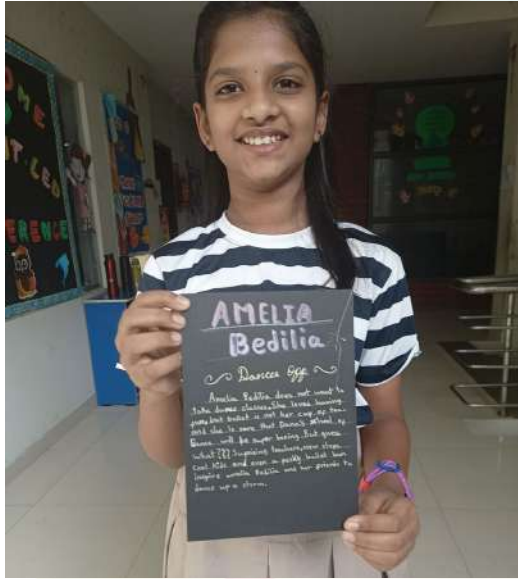 AMELIA
Bedilia
Dances Off
Amelia Bedilia does not want to
take dance classes. She loves having
fun, but ballet is not her cup of tea
and she is sure that Dana's School of
Dance will be super boring. But guess
what??? Surprising teachers, new steps
Cool kids and even a peky ballet bun
inspire amelia Bedilia and her friends to
dance up a storm.
OME
LED
ERENCE